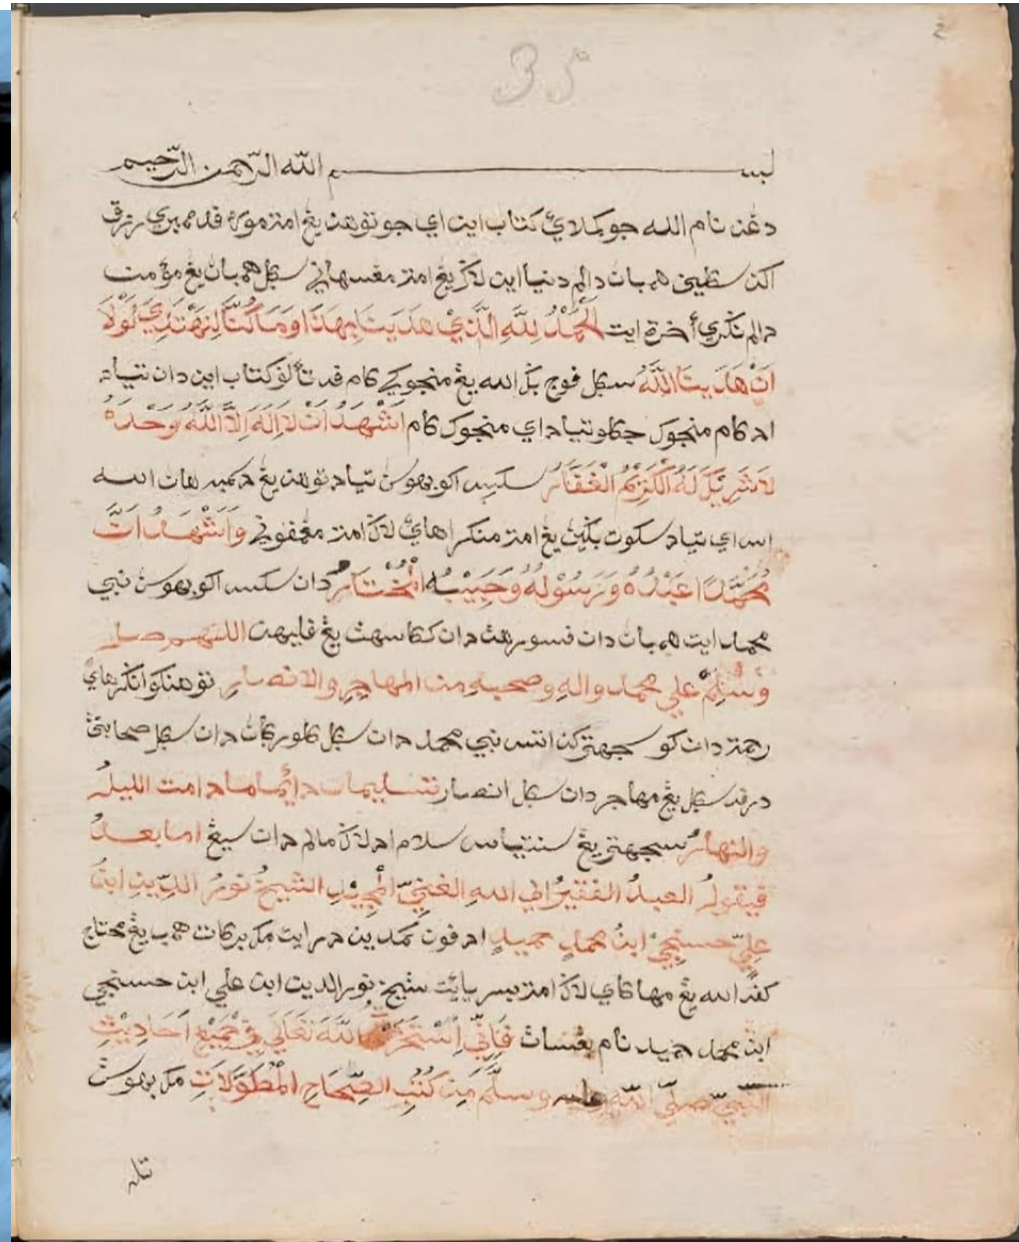 بسم الله الرّحمن الرّحيم
دڠن نام الله جوكملائي كتاب اين اي جو توهن يڠ امت موره فد ممبري رزق
اكن سكلين همبان دالم دنيا اين لاڬي يڠ امت مڠسهاني سكل همبان يڠ مؤمن
دالم نڬري أخرة ايت الْحَمْدُ لِلَّهِ الَّذِيْ هَدَيَنَا لِهَذَا وَمَا كُنَّا لِنَهْتَدِيَ لَوْلَا
اَنْ هَدَينَا اللَّهُ سكل فوج بڬ الله يڠ منجوكي كام فد تأليف كتاب اين دان تياد
اد كام منجوك جكلو تياد اي منجوك كام اَشْهَدُ اَنْ لَا اِلَهَ اِلَّا اللَّهُ وَحْدَهُ
لَا شَرِيْكَ لَهُ الْكَرِيْمُ الْغَفَّارُ سكسي اكو بهوسن تياد توهن يڠ دسمبه هان الله
اس اي تياد سكوت بڬين يڠ امت لاڬ امت مڠمفوني وَاَشْهَدُ اَنَّ
مُحَمَّدًا عَبْدُهُ وَرَسُوْلُهُ وَحَبِيْبُهُ الْمُخْتَارُ دان سكسي اكو بهوسن نبي
محمد ايت همبان دان فسورهن دان ككاسهن يڠ فليهن اللهم صل
وَسَلِّمْ علي محمد واله وصحبه من المهاجرِ والانصارِ توهنكو
رحمة دان كو سجهتركن اتس نبي محمد دان سكل كلورڬان دان سكل صحابتڽ
درفد سكل يڠ مهاجر دان سكل انصار تسليمات دائما مادامت الليلُ
والنهارُ سجهتر يڠ سنتياس سلام اد لاڬ مالم دان سيڠ اما بعدُ
فيقولُ العبدُ الفقيرُ الي اللهِ الغنيّ المجيدِ الشيخُ نورُ الدّينِ ابنُ
عليِّ حسنجيْ ابنُ محمدٍ حميدٍ ادفون كمدين در ايت مك بركات همب يڠ محتاج
كفد الله يڠ مها كاي لاڬ امت بسر يأيت شيخ نور الدين ابن علي ابن حسنجي
ابن محمد حميد نام بڠسان فَاِنِّي اِسْتَخَرْتُ اللَّهَ تَعَلَي فِي جَمِيْعِ اَحَادِيْثِ
النَّبِيِّ صلّي اللّه عليه وسلَّم مِن كُتُبِ الصِّحَاحِ الْمُطَوَّلَاتِ مك بهوسن
تله